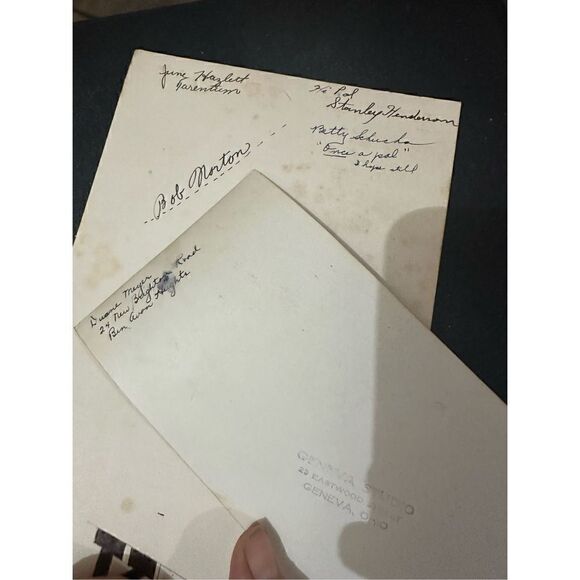 June Hazlett
Tarentum
Hi Pal
Stanley Henderson
Betty Schucha
"Once a pal"
I hope still
Bob Morton
Duane Meyer
24 New Brighton Road
Ben Avon Heights
GENEVA STUDIO
EASTWOOD
GENEVA, O